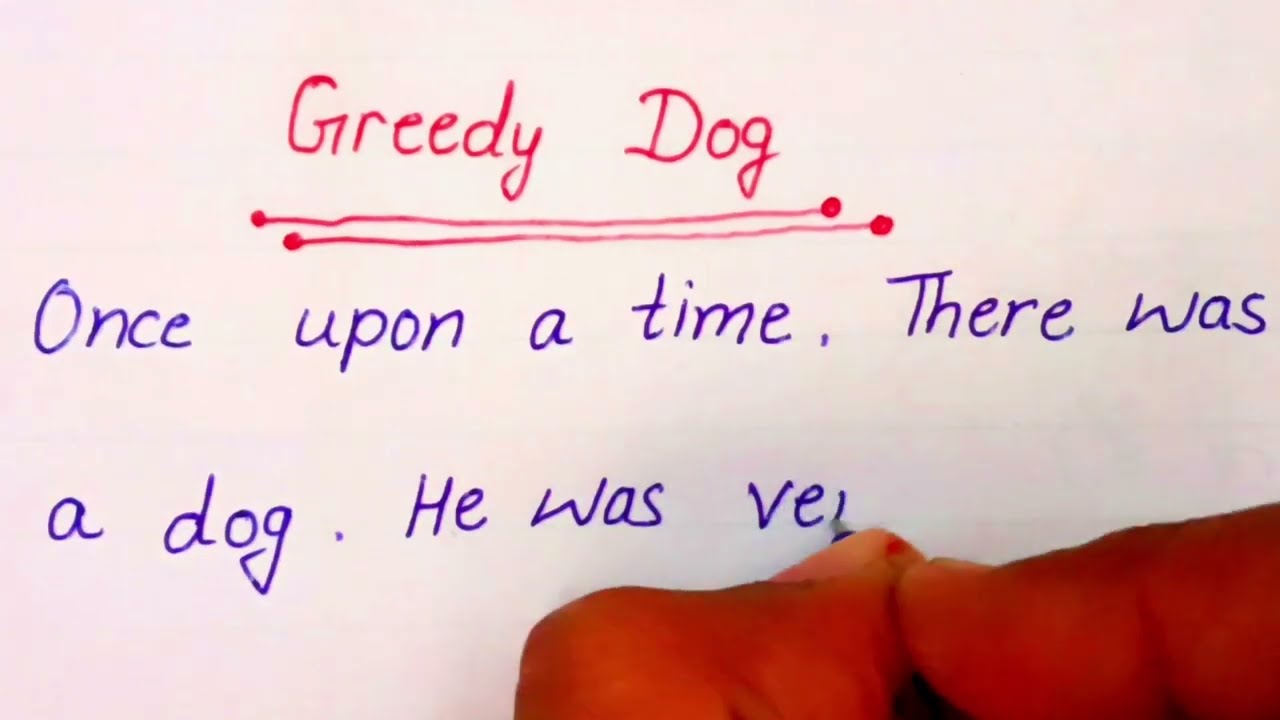 Greedy Dog
Once upon a time. There was
a dog. He was ve